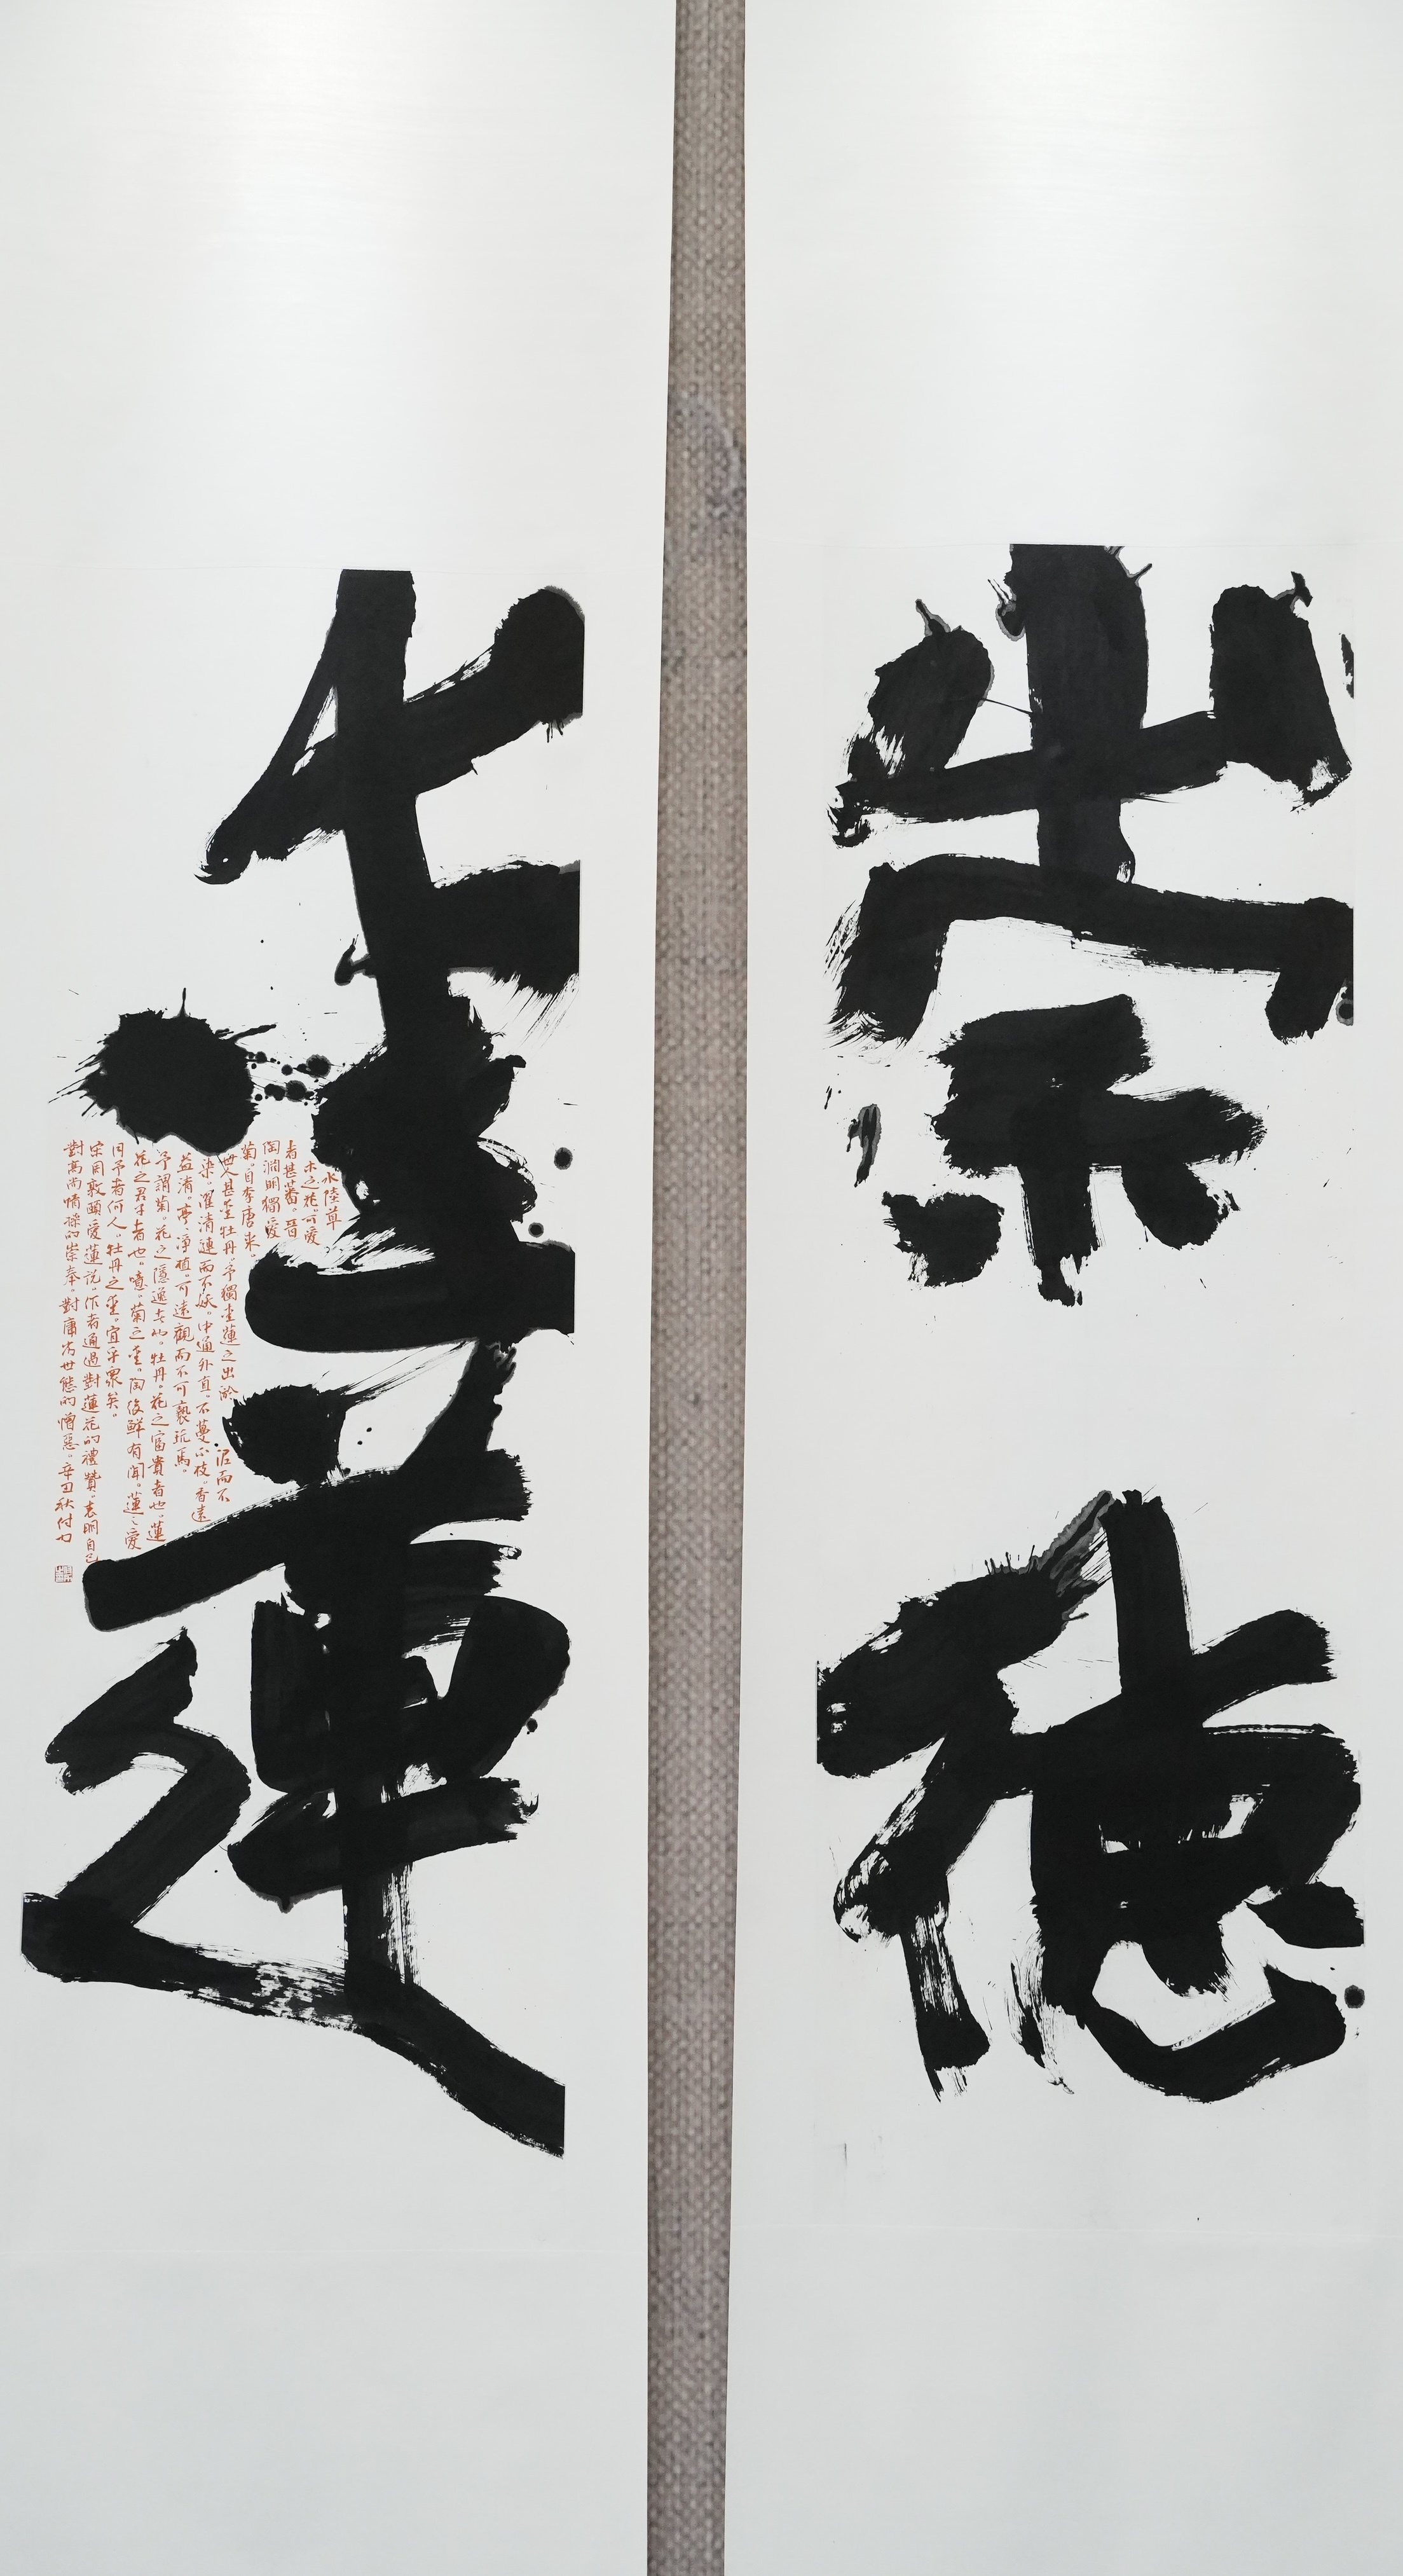 崇德
愛蓮
水陸草
木之花。可愛
者甚蕃。晉
陶淵明獨愛
菊。自李唐來。
世人甚愛牡丹。予獨愛蓮之出淤泥而不
染。濯清漣而不妖。中通外直。不蔓不枝。香遠
益清。亭亭淨植。可遠觀而不可褻玩焉。
予謂菊。花之隱逸者也。牡丹。花之富貴者也。蓮
花之君子者也。噫。菊之愛。陶後鮮有聞。蓮之愛
同予者何人。牡丹之愛。宜乎衆矣。
宋周敦頤愛蓮說。作者通過對蓮花的禮贊。表明自己
對高尚情操的崇奉。對庸劣世態的憎惡。辛丑秋付力